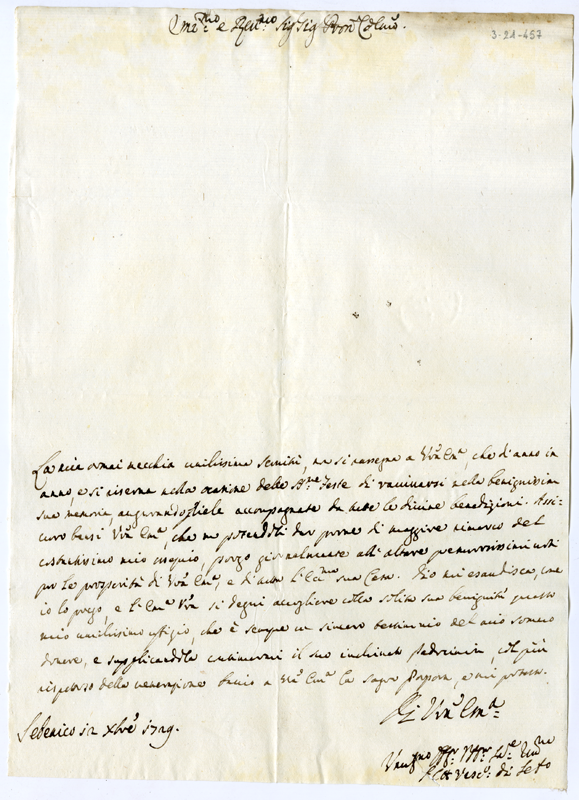 Em.mo e Rev.mo Sig. Sig. Pron Col.mo
3-21-457
La mia ormai vecchia umilissima servitù, ra si rassegna a V.ra Em.a, che d'anno in
anno, e si riserva nella occasione delle S.me Feste di ravvivarsi nella benignissima
sua memoria, augurandogliele accompagnate da tutte le divine benedizioni. Assi-
curo bensì V.ra Em.a, che non potendoli dar prove di maggior rimarco del
costantissimo mio ossequio, porgo giornalmente all'altare premurosissimi voti
per la prosperità di V.ra Em.a, e di tutta l'Ecc.ma sua Casa. Dio mi esaudisca, come
io lo prego, e l'Em.a V.ra si degni accogliere colla solita sua benignità questo
mio umilissimo offizio, che è sempre un sincero testimonio del mio somero
dovere, e supplicandola continuarmi il suo inclinato Padrocinio, col più
rispettoso della venerazione bacio a V.ra Em.a la sagra Porpora, e mi protesto.
Di V.ra Em.a
Sebenico 12 Xbre 1729.
Vesc.o di